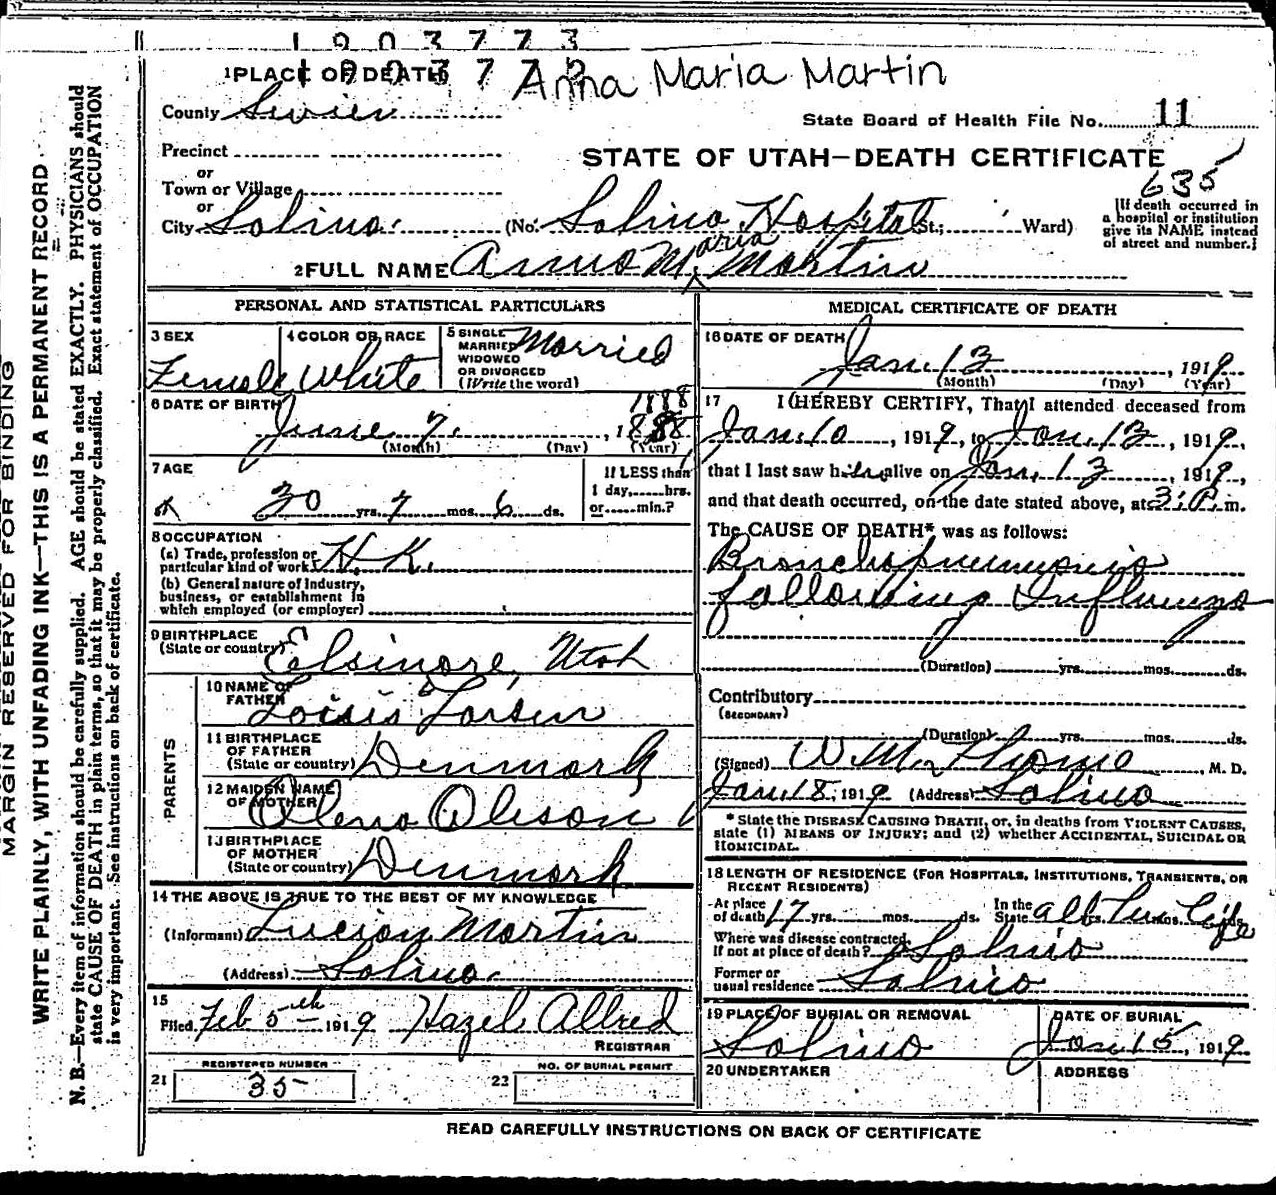 1903773
1 PLACE OF DEATH Anna Maria Martin
County Sevier
State Board of Health File No. 11
Precinct
STATE OF UTAH—DEATH CERTIFICATE
or
635
Town or Village
or
City Salina (No. Salina Hospital St.; Ward)
[If death occurred in
a hospital or institution
give its NAME instead
of street and number.]
Maria
2 FULL NAME Anna M. Martin
PERSONAL AND STATISTICAL PARTICULARS
3 SEX
Female
4 COLOR OR RACE
White
5 SINGLE
MARRIED
WIDOWED
OR DIVORCED
(Write the word)
Married
6 DATE OF BIRTH
1888
June 7, 1888
(Month) (Day) (Year)
7 AGE
30 yrs. 7 mos. 6 ds.
If LESS than
1 day, hrs.
or min.?
8 OCCUPATION
(a) Trade, profession or
particular kind of work H. K.
(b) General nature of industry,
business, or establishment in
which employed (or employer)
9 BIRTHPLACE
(State or country) Elsinore, Utah
PARENTS
10 NAME OF
FATHER Louis Larsen
11 BIRTHPLACE
OF FATHER
(State or country) Denmark
12 MAIDEN NAME
OF MOTHER Olena Oleson
13 BIRTHPLACE
OF MOTHER
(State or country) Denmark
14 THE ABOVE IS TRUE TO THE BEST OF MY KNOWLEDGE
(Informant) Lucion Martin
(Address) Salina
15
Filed Feb 5th 1919 Hazel Allred
REGISTRAR
REGISTERED NUMBER
21 35
NO. OF BURIAL PERMIT
22
MEDICAL CERTIFICATE OF DEATH
16 DATE OF DEATH
Jan. 13, 1919
(Month) (Day) (Year)
17 I HEREBY CERTIFY, That I attended deceased from
Jan. 10, 1919, to Jan. 13, 1919,
that I last saw her alive on Jan. 13, 1919,
and that death occurred, on the date stated above, at 3 P. m.
The CAUSE OF DEATH* was as follows:
Bronchopneumonia
following Influenza
(Duration) yrs. mos. ds.
Contributory
(SECONDARY)
(Duration) yrs. mos. ds.
(Signed) W. M. , M. D.
Jan. 18, 1919 (Address) Salina
* State the DISEASE CAUSING DEATH, or, in deaths from VIOLENT CAUSES,
state (1) MEANS OF INJURY; and (2) whether ACCIDENTAL, SUICIDAL OR
HOMICIDAL.
18 LENGTH OF RESIDENCE (FOR HOSPITALS, INSTITUTIONS, TRANSIENTS, OR
RECENT RESIDENTS)
At place
of death 17 yrs. mos. ds.
In the
State all her life
Where was disease contracted,
if not at place of death? Salina
Former or
usual residence Salina
19 PLACE OF BURIAL OR REMOVAL
Salina
DATE OF BURIAL
Jan 15, 1919
20 UNDERTAKER
ADDRESS
READ CAREFULLY INSTRUCTIONS ON BACK OF CERTIFICATE
MARGIN RESERVED FOR BINDING
WRITE PLAINLY, WITH UNFADING INK—THIS IS A PERMANENT RECORD
N. B.—Every item of information should be carefully supplied. AGE should be stated EXACTLY. PHYSICIANS should
state CAUSE OF DEATH in plain terms, so that it may be properly classified. Exact statement of OCCUPATION
is very important. See instructions on back of certificate.